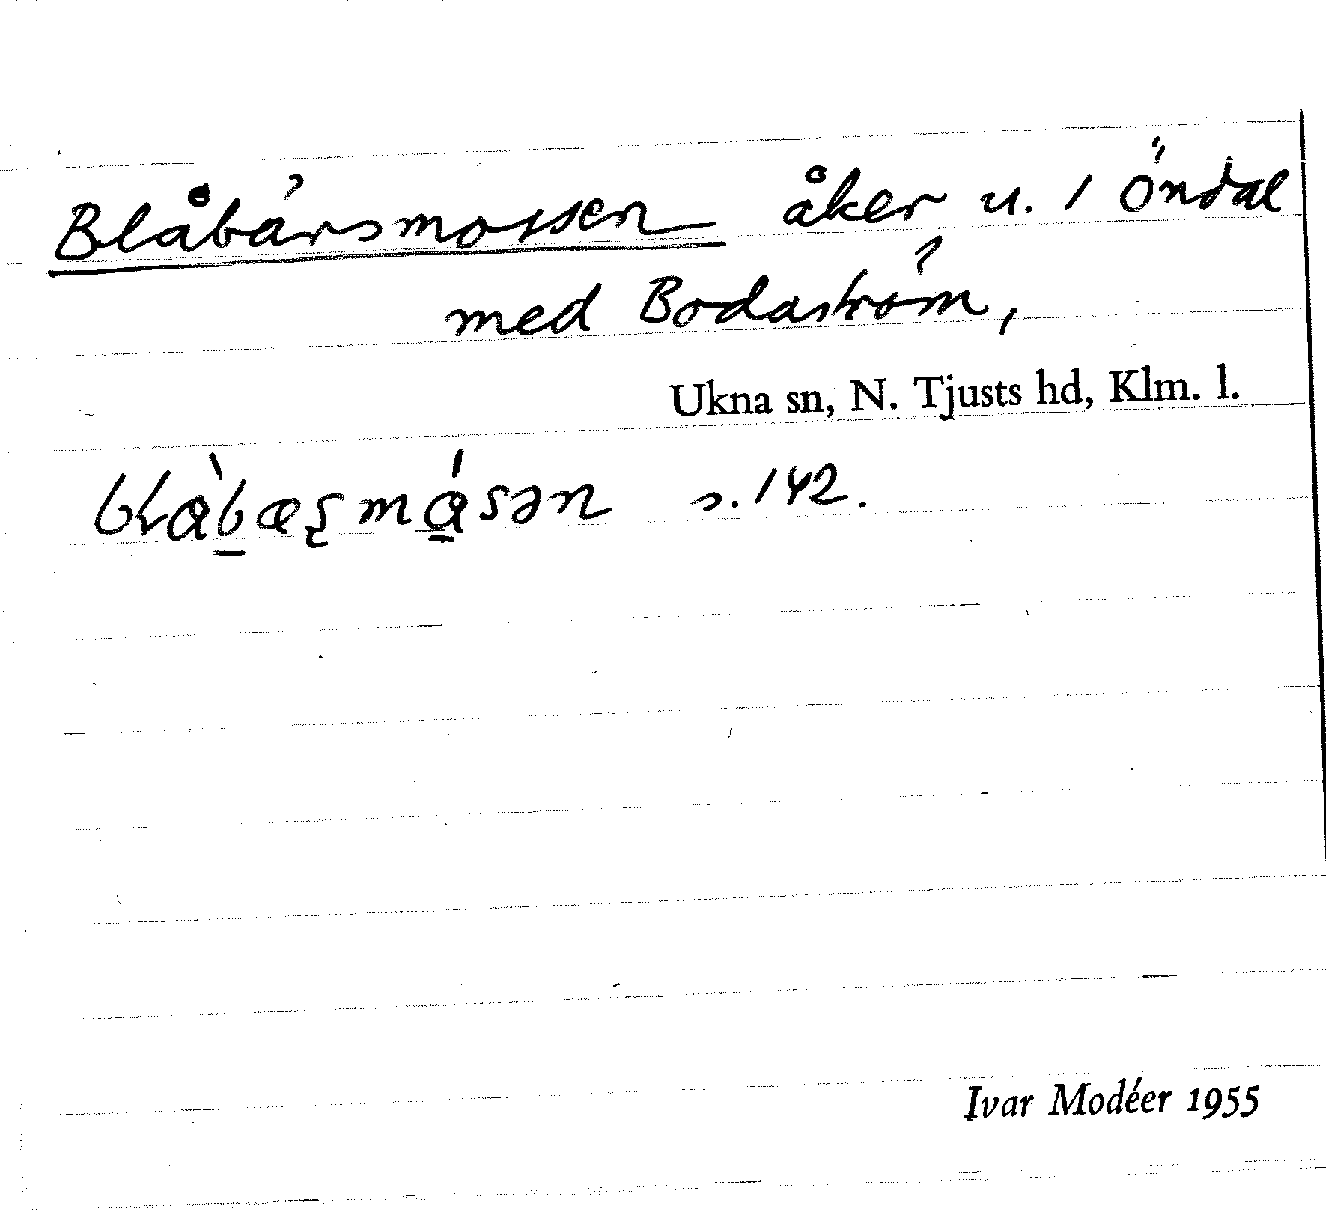 Blåbärsmossen åker u. 1 Öndal
med Bodaström,
Ukna sn, N. Tjusts hd, Klm. l.
s. 142.
Ivar Modéer 1955